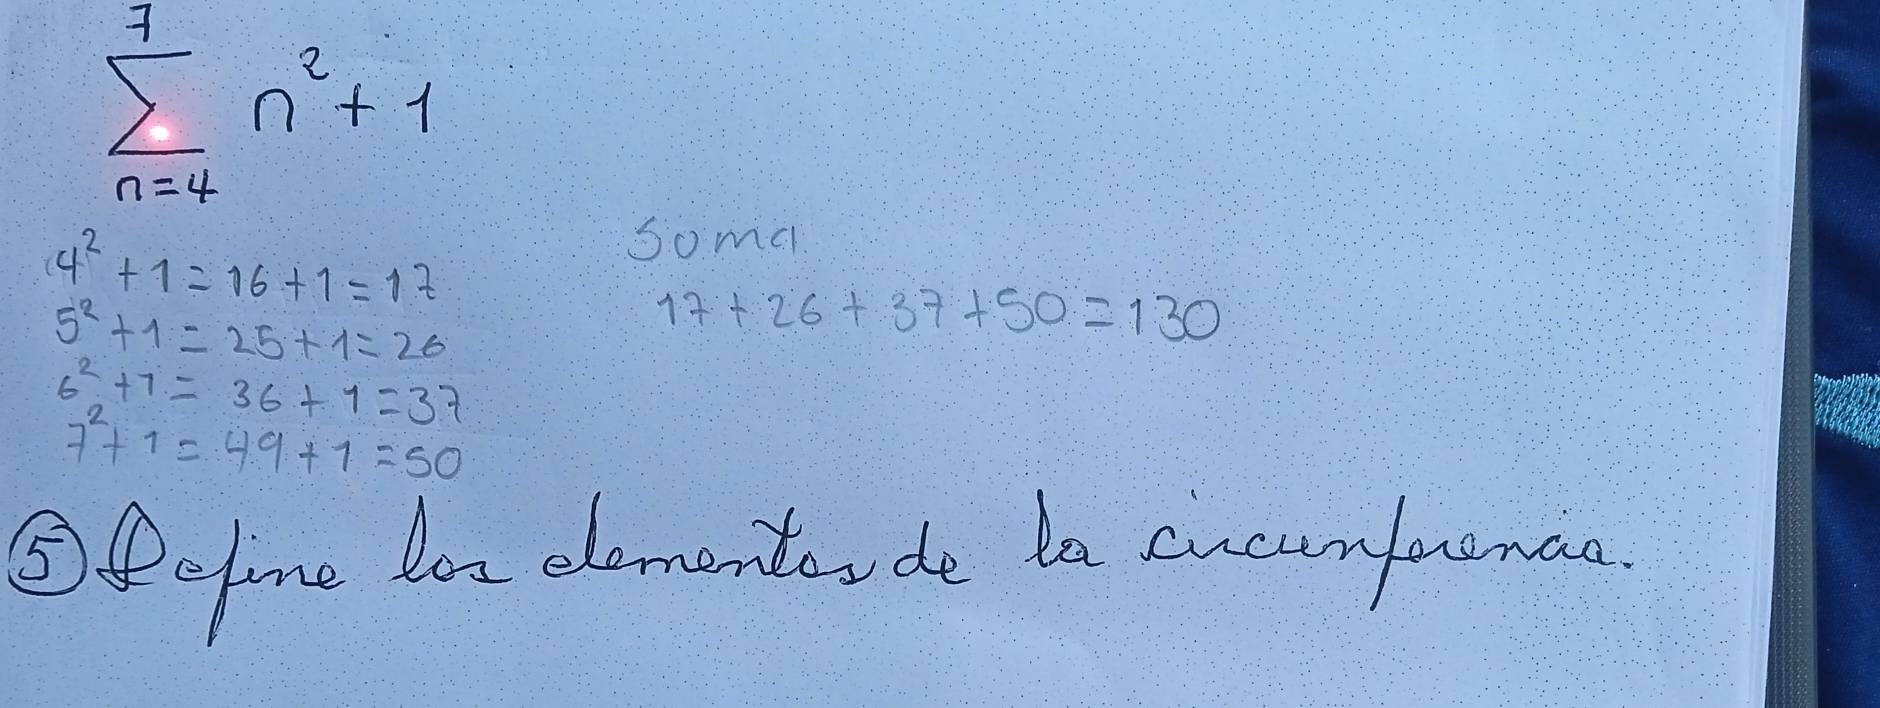 7
∑ n² + 1
n=4
4² + 1 = 16 + 1 = 17
5² + 1 = 25 + 1 = 26
6² + 1 = 36 + 1 = 37
7² + 1 = 49 + 1 = 50
Soma
17 + 26 + 37 + 50 = 130
⑤ Define los elementos de la circunferencia.